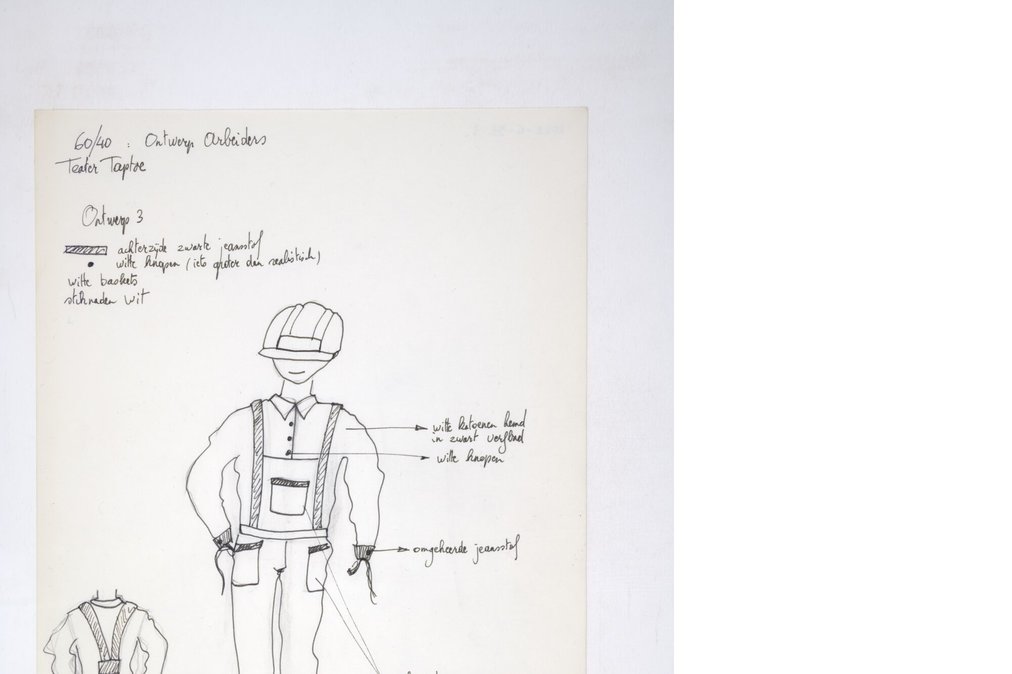 60/40 : Ontwerp Arbeiders
Teater Taptoe
Ontwerp 3
achterzijde zwarte jeansstof
witte knopen (iets groter dan realistisch)
witte baskets
stiknaden wit
witte katoenen hemd
in zwart verfbad
witte knopen
omgekeerde jeansstof